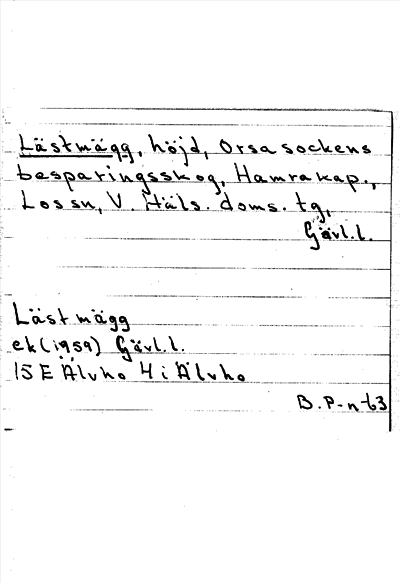 Lästmägg, höjd, Orsa sockens
besparingsskog, Hamra kap.,
Los sn, V. Häls. doms. tg,
Gävl.l.
Lästmägg
ek (1959) Gävl.l.
15 E Älvho 4 i Älvho
B.P-n-63